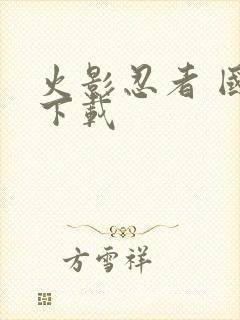 火影忍者 國
下載
方雪祥